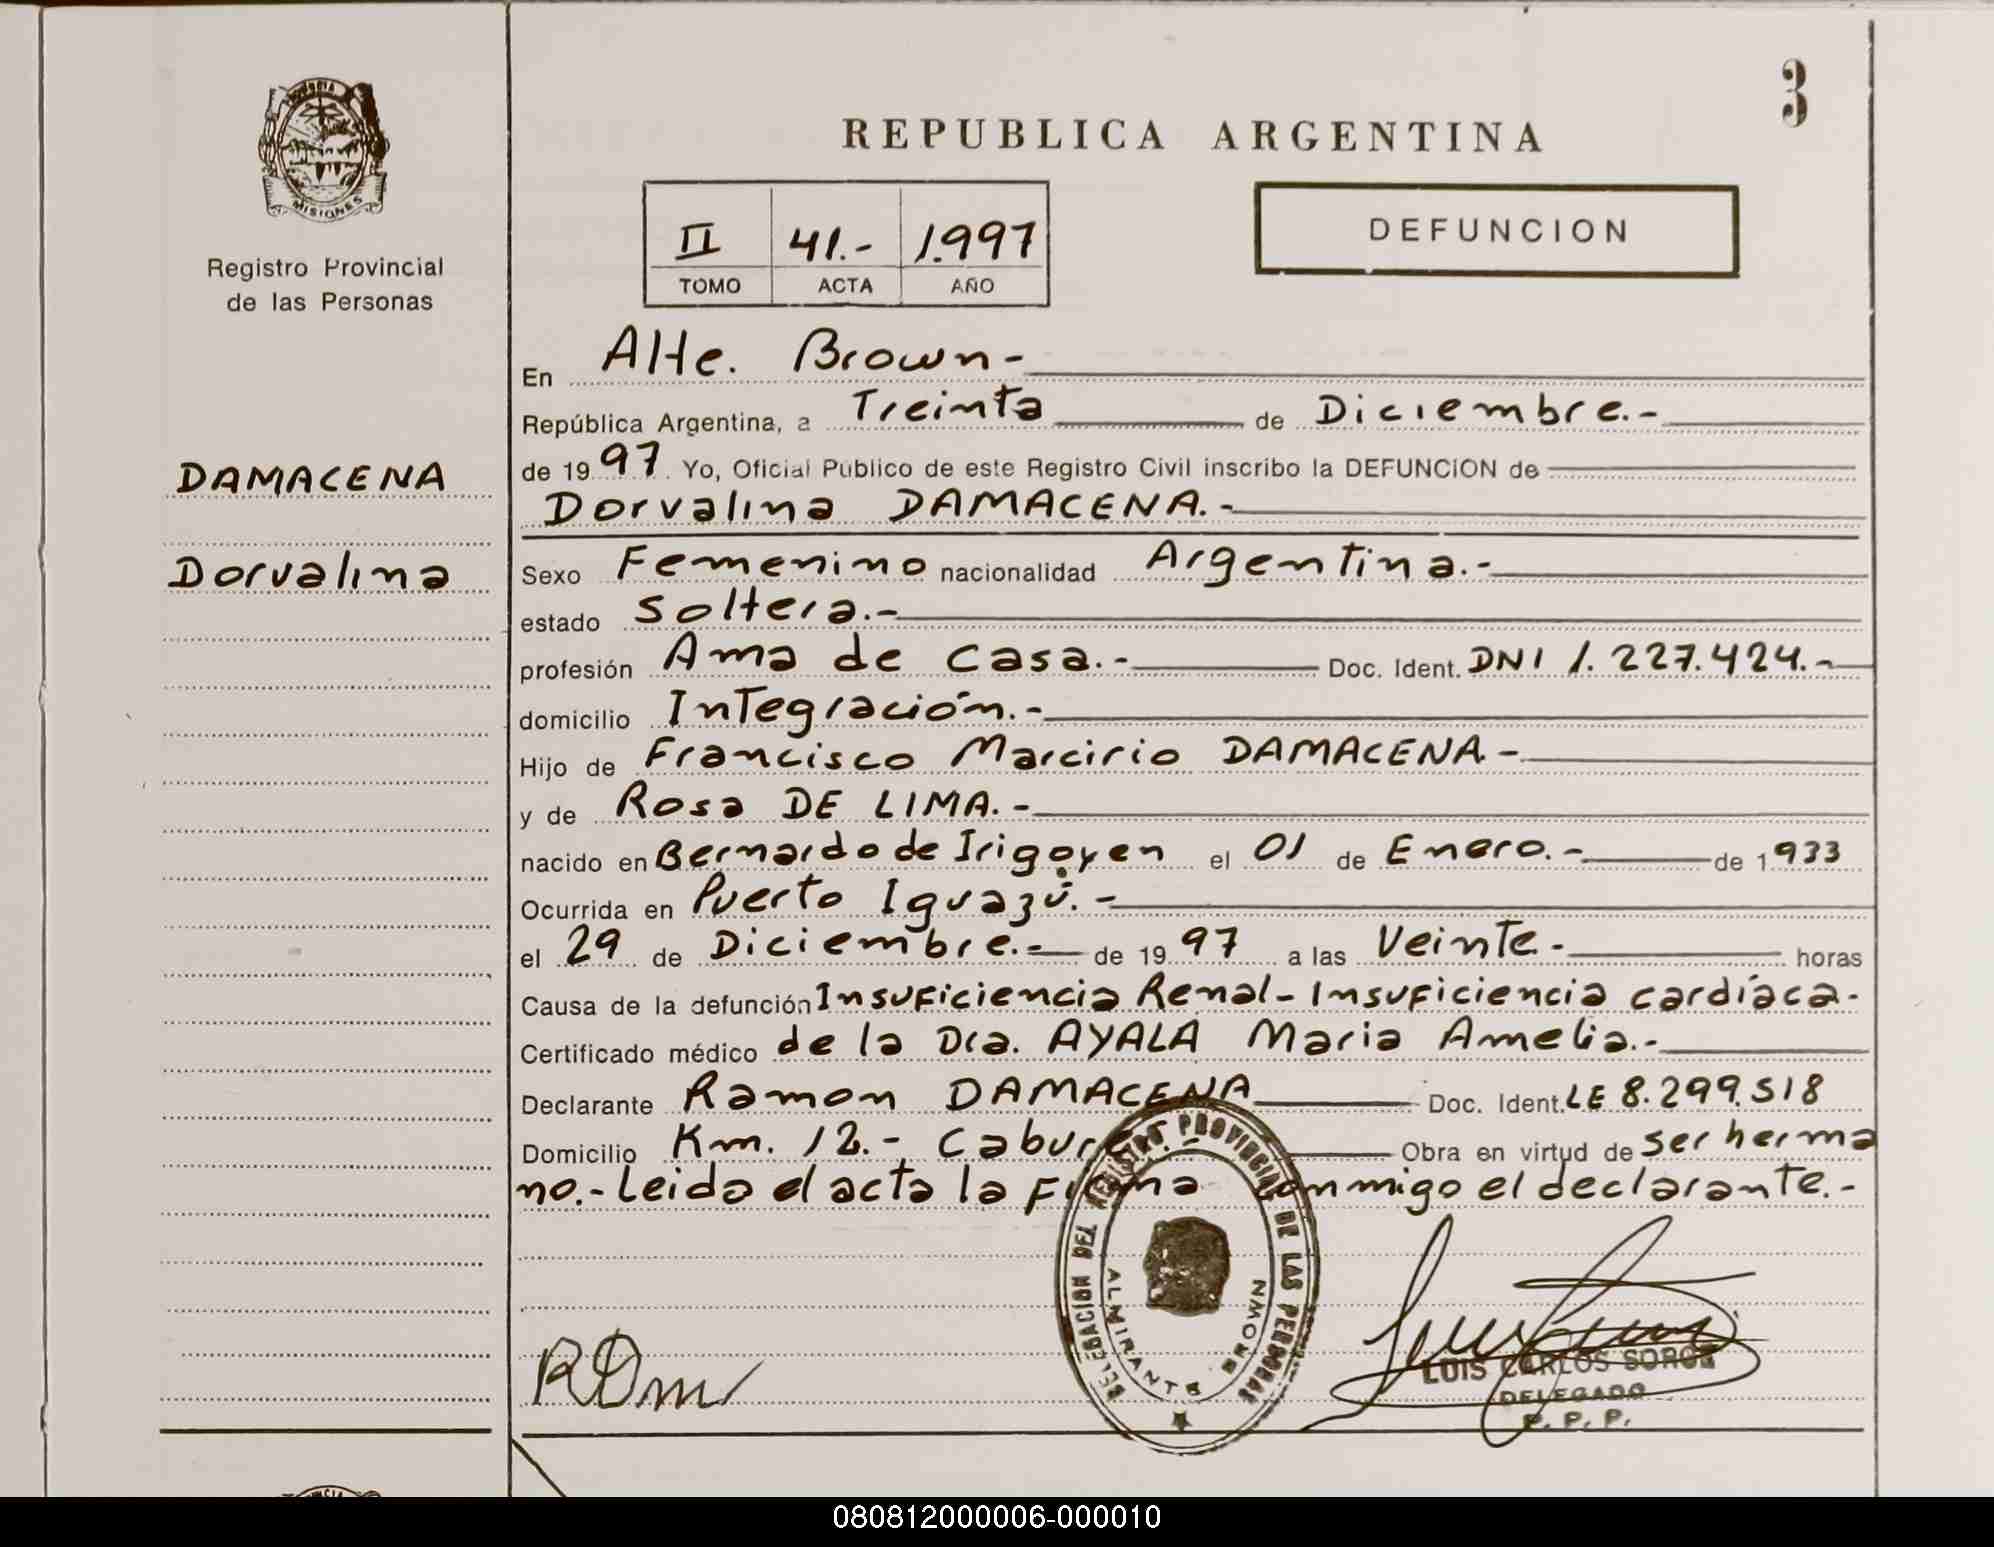 3
PROVINCIA
MISIONES
Registro Provincial
de las Personas
DAMACENA
Dorvalina
REPUBLICA ARGENTINA
II 41.- 1.997
TOMO ACTA AÑO
DEFUNCION
En Alte. Brown-
República Argentina, a Treinta de Diciembre.-
de 1997. Yo, Oficial Público de este Registro Civil inscribo la DEFUNCION de
Dorvalina DAMACENA.-
Sexo Femenino nacionalidad Argentina.-
estado Soltera.-
profesión Ama de casa.- Doc. Ident. DNI 1.227.424.-
domicilio Integración.-
Hijo de Francisco Marcirio DAMACENA.-
y de Rosa DE LIMA.-
nacido en Bernardo de Irigoyen el 01 de Enero.- de 1933
Ocurrida en Puerto Iguazú.-
el 29 de Diciembre.- de 1997 a las Veinte.- horas
Causa de la defunción Insuficiencia Renal- Insuficiencia cardíaca-
Certificado médico de la Dra. AYALA Maria Amelia.-
Declarante Ramon DAMACENA Doc. Ident. LE 8.299.518
Domicilio Km. 12.- Cabure.- Obra en virtud de ser herma
no.- Leida el acta la Firma conmigo el declarante.-
DELEGACION DEL REGISTRO PROVINCIAL DE LAS PERSONAS
ALMIRANTE BROWN
RDm
LUIS CARLOS
DELEGADO
P. P. P.
080812000006-000010